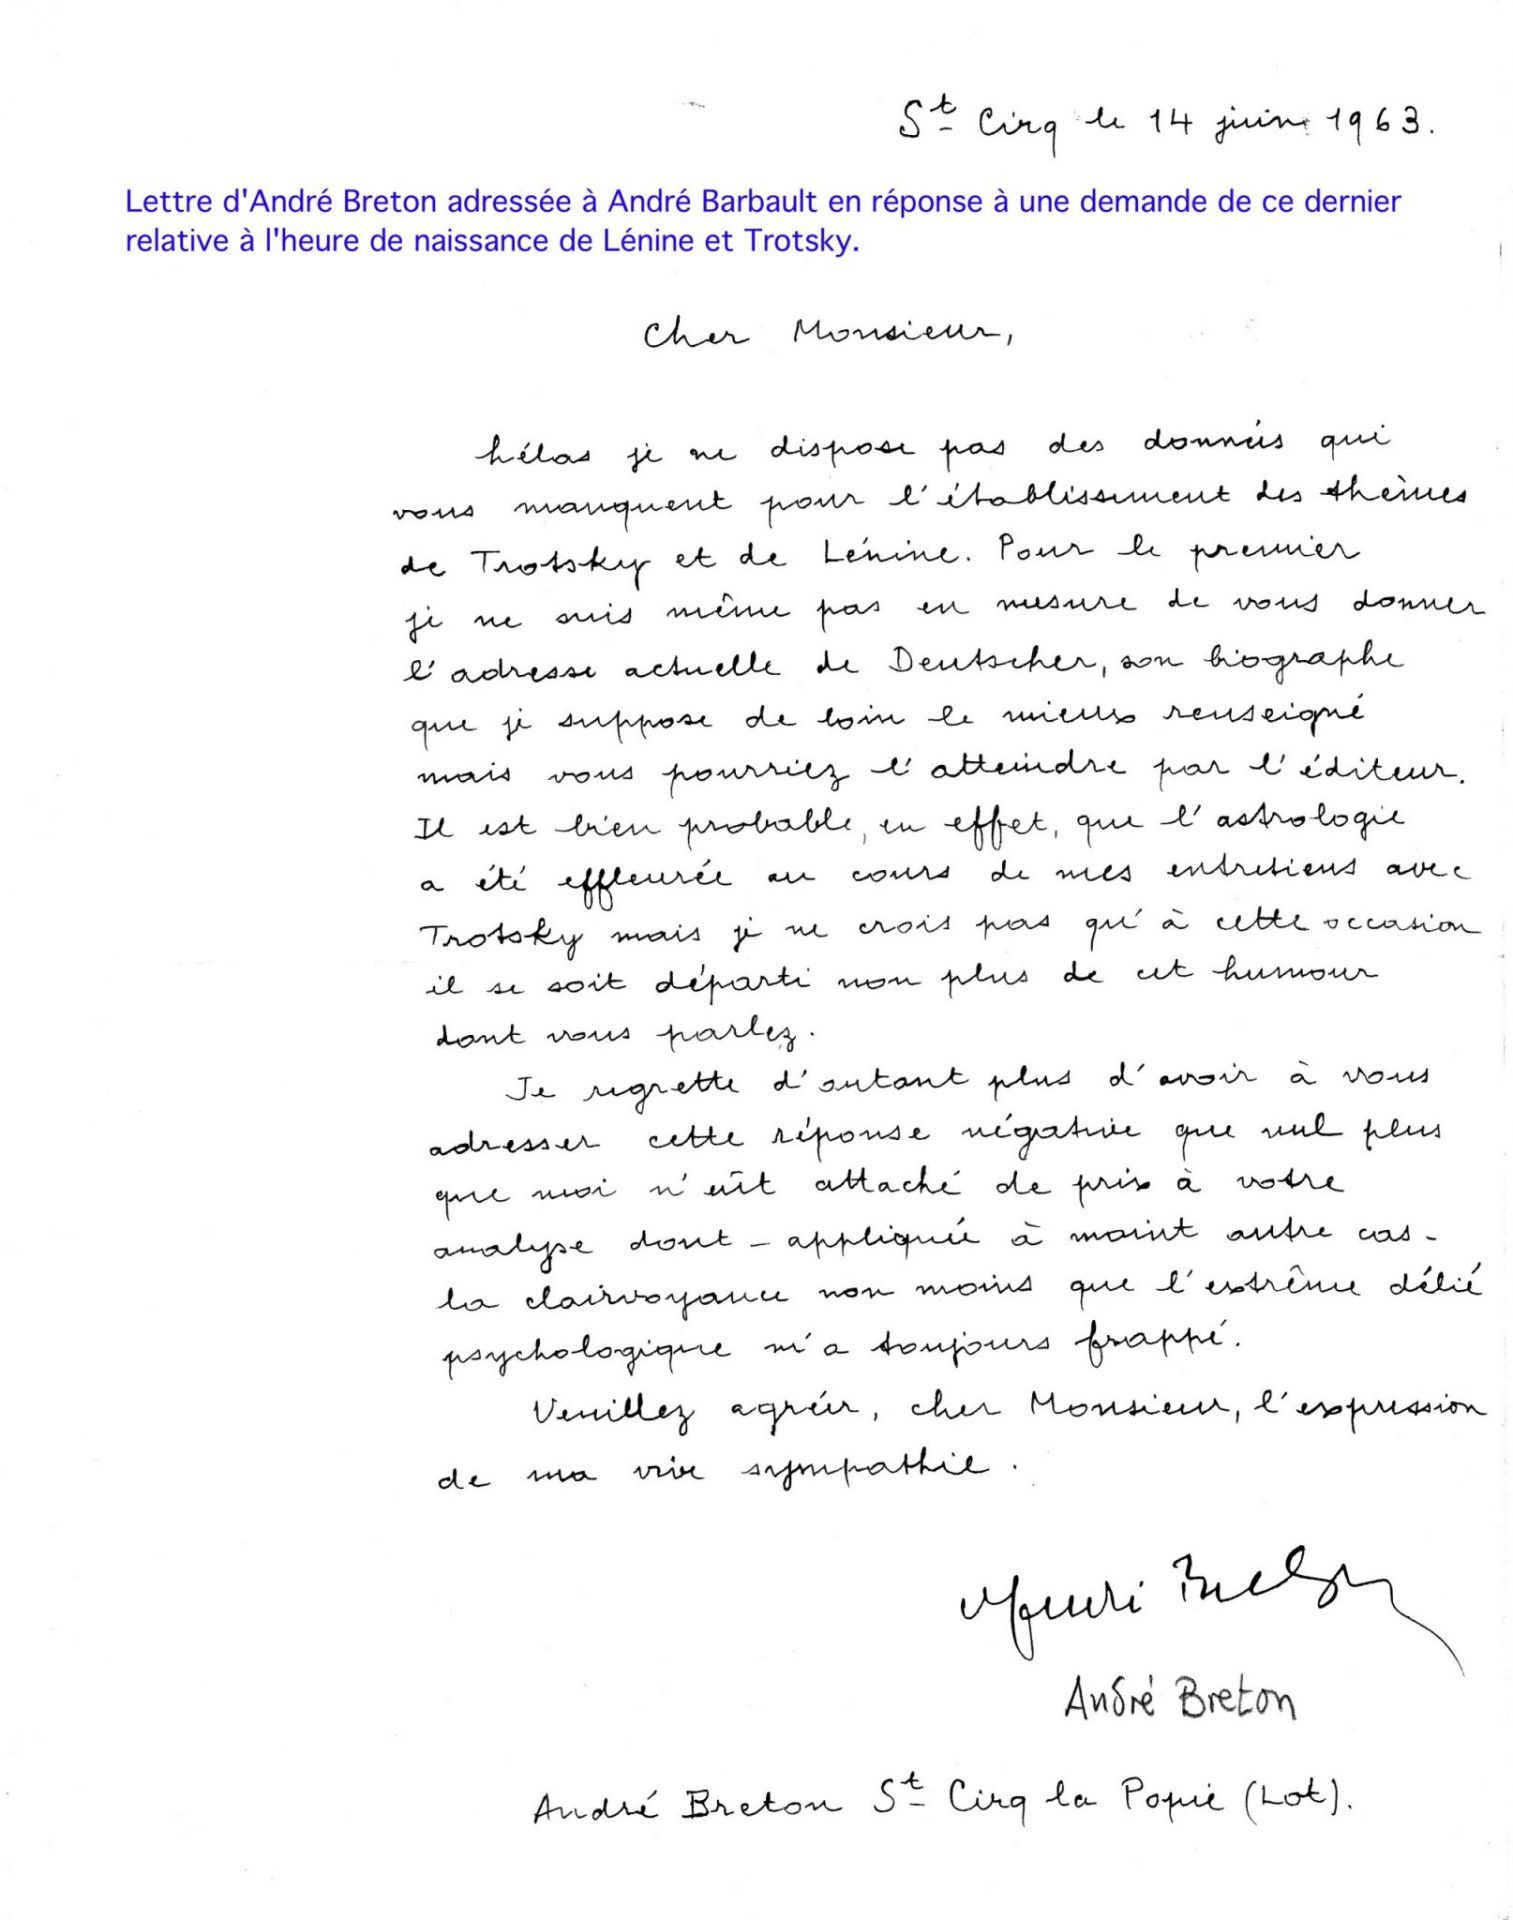 St Cirq le 14 juin 1963.
Lettre d'André Breton adressée à André Barbault en réponse à une demande de ce dernier
relative à l'heure de naissance de Lénine et Trotsky.
Cher Monsieur,
hélas je ne dispose pas des données qui
vous manquent pour l'établissement des thèmes
de Trotsky et de Lénine. Pour le premier
je ne suis même pas en mesure de vous donner
l'adresse actuelle de Deutscher, son biographe
que je suppose de loin le mieux renseigné
mais vous pourriez l'atteindre par l'éditeur.
Il est bien probable, en effet, que l'astrologie
a été effleurée au cours de mes entretiens avec
Trotsky mais je ne crois pas qu'à cette occasion
il se soit départi non plus de cet humour
dont vous parlez.
Je regrette d'autant plus d'avoir à vous
adresser cette réponse négative que nul plus
que moi n'eût attaché de prix à votre
analyse dont – appliquée à maint autre cas –
la clairvoyance non moins que l'extrême délié
psychologique m'a toujours frappé.
Veuillez agréer, cher Monsieur, l'expression
de ma vive sympathie.
André Breton
André Breton St Cirq la Popie (Lot).